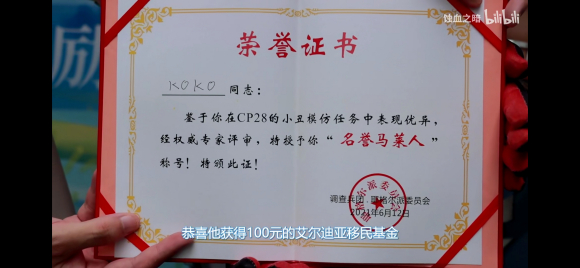 蚀血之暗 bilibili
励
荣誉证书
KOKO 同志：
鉴于你在CP28的小丑模仿任务中表现优异，
经权威专家评审，特授予你“名誉马莱人”
称号！特颁此证！
调查兵团
派委员会
2021年6月12日
恭喜他获得100元的艾尔迪亚移民基金